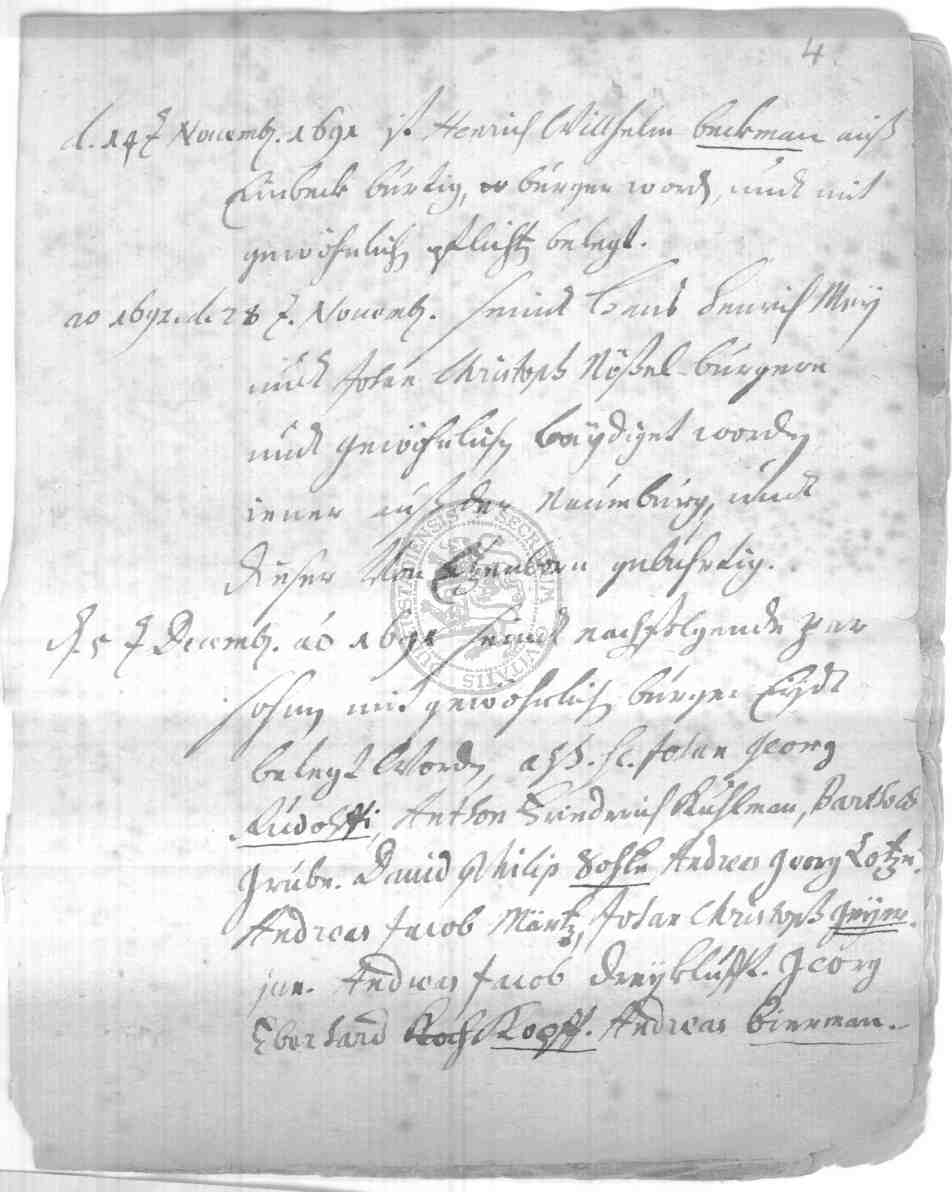 4.
d. 14 t Novemb. 1691 ist Henrich Willhelm beckman auß
Einbeck bürtig, bürger word, undt mit
gewöhnlich pflicht belegt.
ao 1691. d. 28 t. Novemb. seindt Hans Henrich Meÿ
undt Johan Christoph Nößel bürgere
undt gewöhnlich beÿdiget worden
iener auß der Naumburg, undt
dieser von gebührtig.
d. 5 t Decemb. ao 1691 seindt nachfolgende per
sohnen mit gewöhnlich bürger Eÿdt
belegt worden, alß. H. Johan Georg
Rudolffi, Anthon Friedrich Kuhlman, Barthold
Grube. David Philip Sohle Andreas Georg Lotze.
Andreas Jacob Märtz, Johan Christoph
jun. Andreas Jacob Dreÿklufft. Georg
Eberhard Kopff. Andreas Bierman.
SECRETUM CIVITATIS